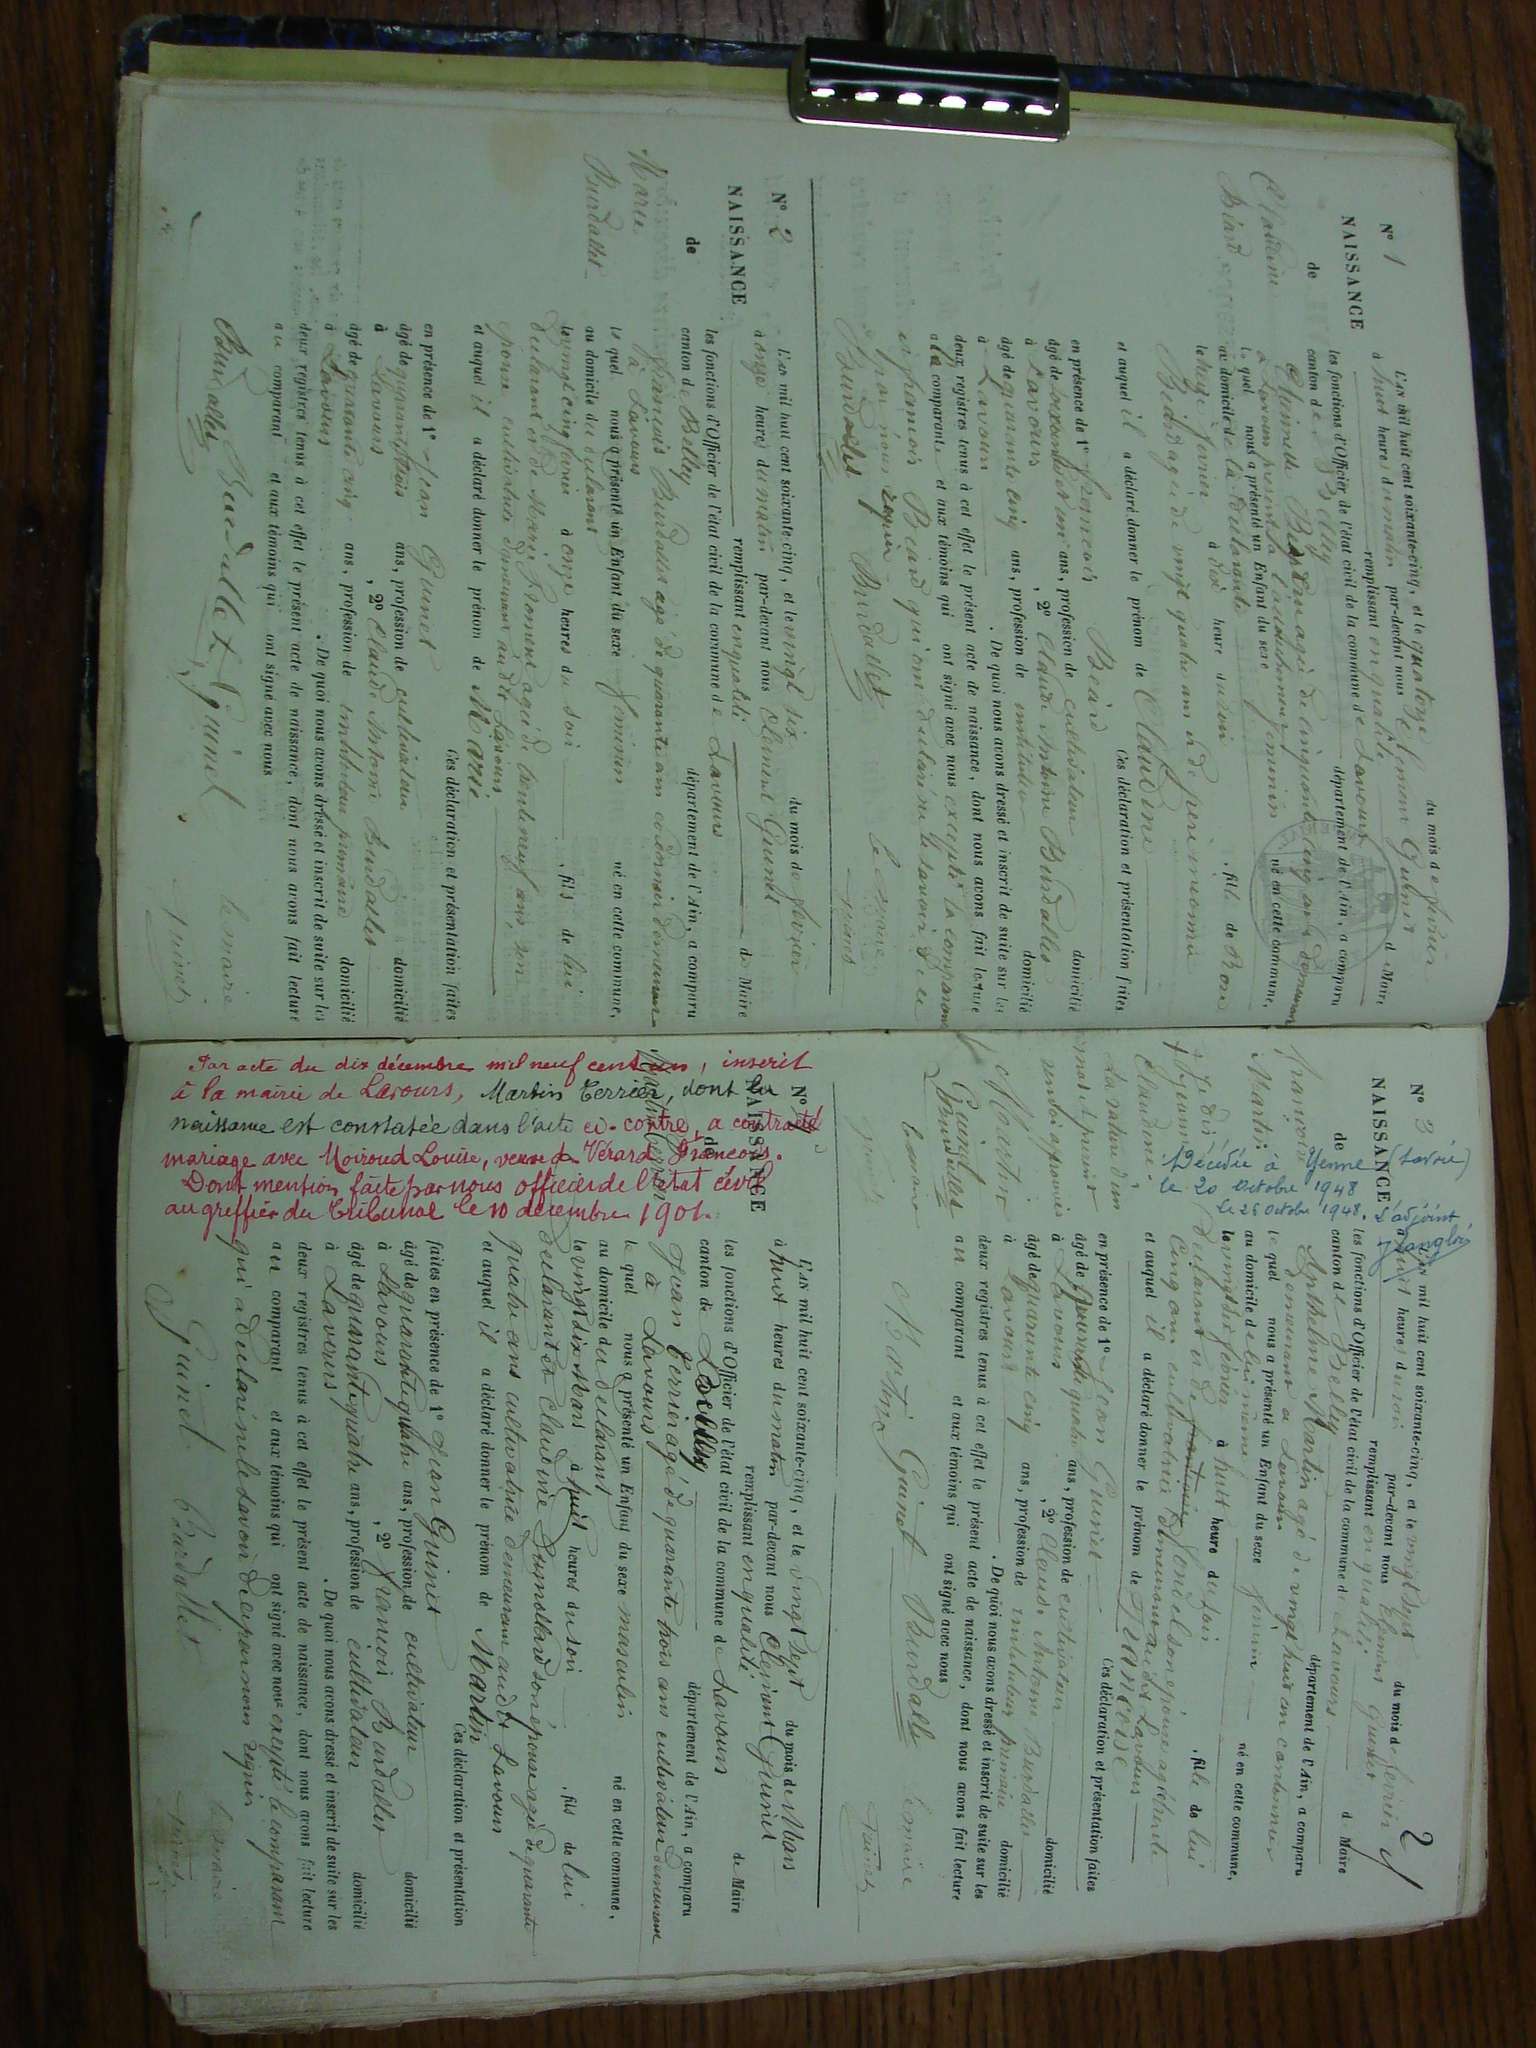 N° 1
NAISSANCE
de
Claudine
Béard
L'an mil huit cent soixante-cinq, et le quatorze du mois de février
à huit heures du matin par-devant nous Clément Guinet
remplissant en qualité de Maire
les fonctions d'Officier de l'état civil de la commune de Lavours
canton de Belley département de l'Ain, a comparu
âgé de cinquante cinq ans
à Lavours
lequel nous a présenté un Enfant du sexe féminin né en cette commune,
au domicile de la déclarante
le de février à dix heures du soir fille de
âgé de vingt quatre ans et de père inconnu
et auquel il a déclaré donner le prénom de Claudine
Ces déclaration et présentation faites
en présence de 1° François Béard
âgé de ans, profession de cultivateur domicilié
à Lavours, 2° Claude Antoine Burdallet
âgé de quarante cinq ans, profession de instituteur domicilié
à Lavours. De quoi nous avons dressé et inscrit de suite sur les
deux registres tenus à cet effet le présent acte de naissance, dont nous avons fait lecture
à la comparante et aux témoins qui ont signé avec nous excepté la comparante
et françois Béard qui ont déclaré ne le savoir de ce
par nous requis
Burdallet Burdallet le maire
Guinet
N° 2
NAISSANCE
de
Marie
Burdallet
L'an mil huit cent soixante-cinq, et le vingt six du mois de février
à onze heures du matin par-devant nous Clément Guinet
remplissant en qualité de Maire
les fonctions d'Officier de l'état civil de la commune de Lavours
canton de Belley département de l'Ain, a comparu
François Burdallet âgé de quarante ans demeurant
à Lavours
lequel nous a présenté un Enfant du sexe féminin né en cette commune,
au domicile du déclarant
le vingt cinq février à onze heures du soir fils de lui
déclarant et de Marie âgée de trente neuf ans, son
épouse cultivatrice demeurant audit Lavours
et auquel il a déclaré donner le prénom de Marie
Ces déclaration et présentation faites
en présence de 1° Jean Guinet
âgé de quarante trois ans, profession de cultivateur domicilié
à Lavours, 2° Claude Antoine Burdallet
âgé de quarante cinq ans, profession de instituteur primaire domicilié
à Lavours. De quoi nous avons dressé et inscrit de suite sur les
deux registres tenus à cet effet le présent acte de naissance, dont nous avons fait lecture
au comparant et aux témoins qui ont signé avec nous
Burdallet Burdallet Guinet le maire
Guinet
2
N° 3
NAISSANCE
de
Françoise
Martin
Décédée à Yenne (Savoie)
le 20 octobre 1948
Le 26 octobre 1948. L'adjoint
L'an mil huit cent soixante-cinq, et le vingt sept du mois de février
à huit heures du soir par-devant nous Clément Guinet
remplissant en qualité de Maire
les fonctions d'Officier de l'état civil de la commune de Lavours
canton de Belley département de l'Ain, a comparu
Anthelme Martin âgé de vingt huit ans cantonnier
demeurant à Lavours
lequel nous a présenté un Enfant du sexe féminin né en cette commune,
au domicile de lui même
le vingt six février à huit heures du soir fille de lui
déclarant et de son épouse âgée de trente
cinq ans cultivatrice demeurant audit Lavours
et auquel il a déclaré donner le prénom de Françoise
Ces déclaration et présentation faites
en présence de 1° Jean Guinet
âgé de quarante quatre ans, profession de cultivateur domicilié
à Lavours, 2° Claude Antoine Burdallet
âgé de quarante cinq ans, profession de instituteur primaire domicilié
à Lavours. De quoi nous avons dressé et inscrit de suite sur les
deux registres tenus à cet effet le présent acte de naissance, dont nous avons fait lecture
au comparant et aux témoins qui ont signé avec nous
Martin Guinet Burdallet le maire
Guinet
La rature d'un
mot
Martin
Guinet
Burdallet
le maire
Guinet
N° 4
NAISSANCE
de
Martin Terrier
Par acte du dix décembre mil neuf cent un, inscrit
à la mairie de Lavours, Martin Terrier, dont la
naissance est constatée dans l'acte ci-contre, a contracté
mariage avec Moiroud Louise, veuve de Vérard François.
Dont mention faite par nous officier de l'état civil
au greffier du Tribunal le 10 décembre 1901.
L'an mil huit cent soixante-cinq, et le vingt sept du mois de Mars
à huit heures du matin par-devant nous Clément Guinet
remplissant en qualité de Maire
les fonctions d'Officier de l'état civil de la commune de Lavours
canton de Belley département de l'Ain, a comparu
Jean Terrier âgé de quarante trois ans cultivateur demeurant
à Lavours
lequel nous a présenté un Enfant du sexe masculin né en cette commune,
au domicile du déclarant
le vingt six Mars à huit heures du soir fils de lui
déclarant et de Claudine son épouse âgée de quarante
quatre ans cultivatrice demeurant audit Lavours
et auquel il a déclaré donner le prénom de Martin
Ces déclaration et présentation
faites en présence de 1° Jean Guinet
âgé de quarante quatre ans, profession de cultivateur domicilié
à Lavours, 2° François Burdallet
âgé de quarante quatre ans, profession de cultivateur domicilié
à Lavours. De quoi nous avons dressé et inscrit de suite sur les
deux registres tenus à cet effet le présent acte de naissance, dont nous avons fait lecture
au comparant et aux témoins qui ont signé avec nous excepté le comparant
qui a déclaré ne le savoir de ce par nous requis
Guinet Burdallet le maire
Guinet